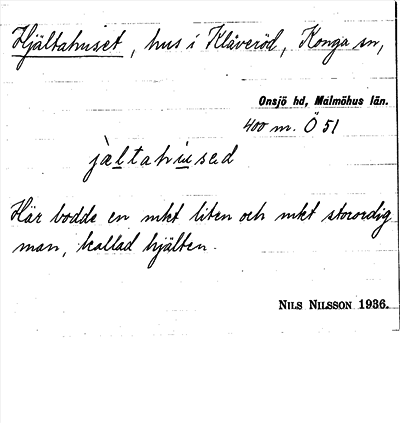 Hjältahuset, hus i Klåveröd, Konga sn,
Onsjö hd, Malmöhus län.
400 m. Ö 51
jàltahused
Här bodde en mkt liten och mkt storordig
man, kallad hjälten.
NILS NILSSON 1936.